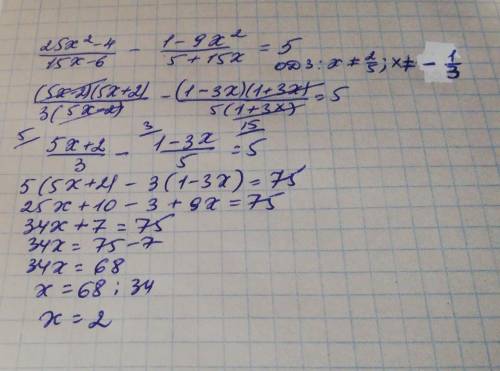 (25x² - 4)/(15x - 6) - (1 - 9x²)/(5 + 15x) = 5 ОДЗ: x ≠ 2/5; x ≠ - 1/3
(5x-2)(5x+2)/3(5x-2) - (1-3x)(1+3x)/5(1+3x) = 5
5/ (5x+2)/3 - 3/ (1-3x)/5 = 15/ 5
5(5x+2) - 3(1-3x) = 75
25x + 10 - 3 + 9x = 75
34x + 7 = 75
34x = 75 - 7
34x = 68
x = 68 : 34
x = 2